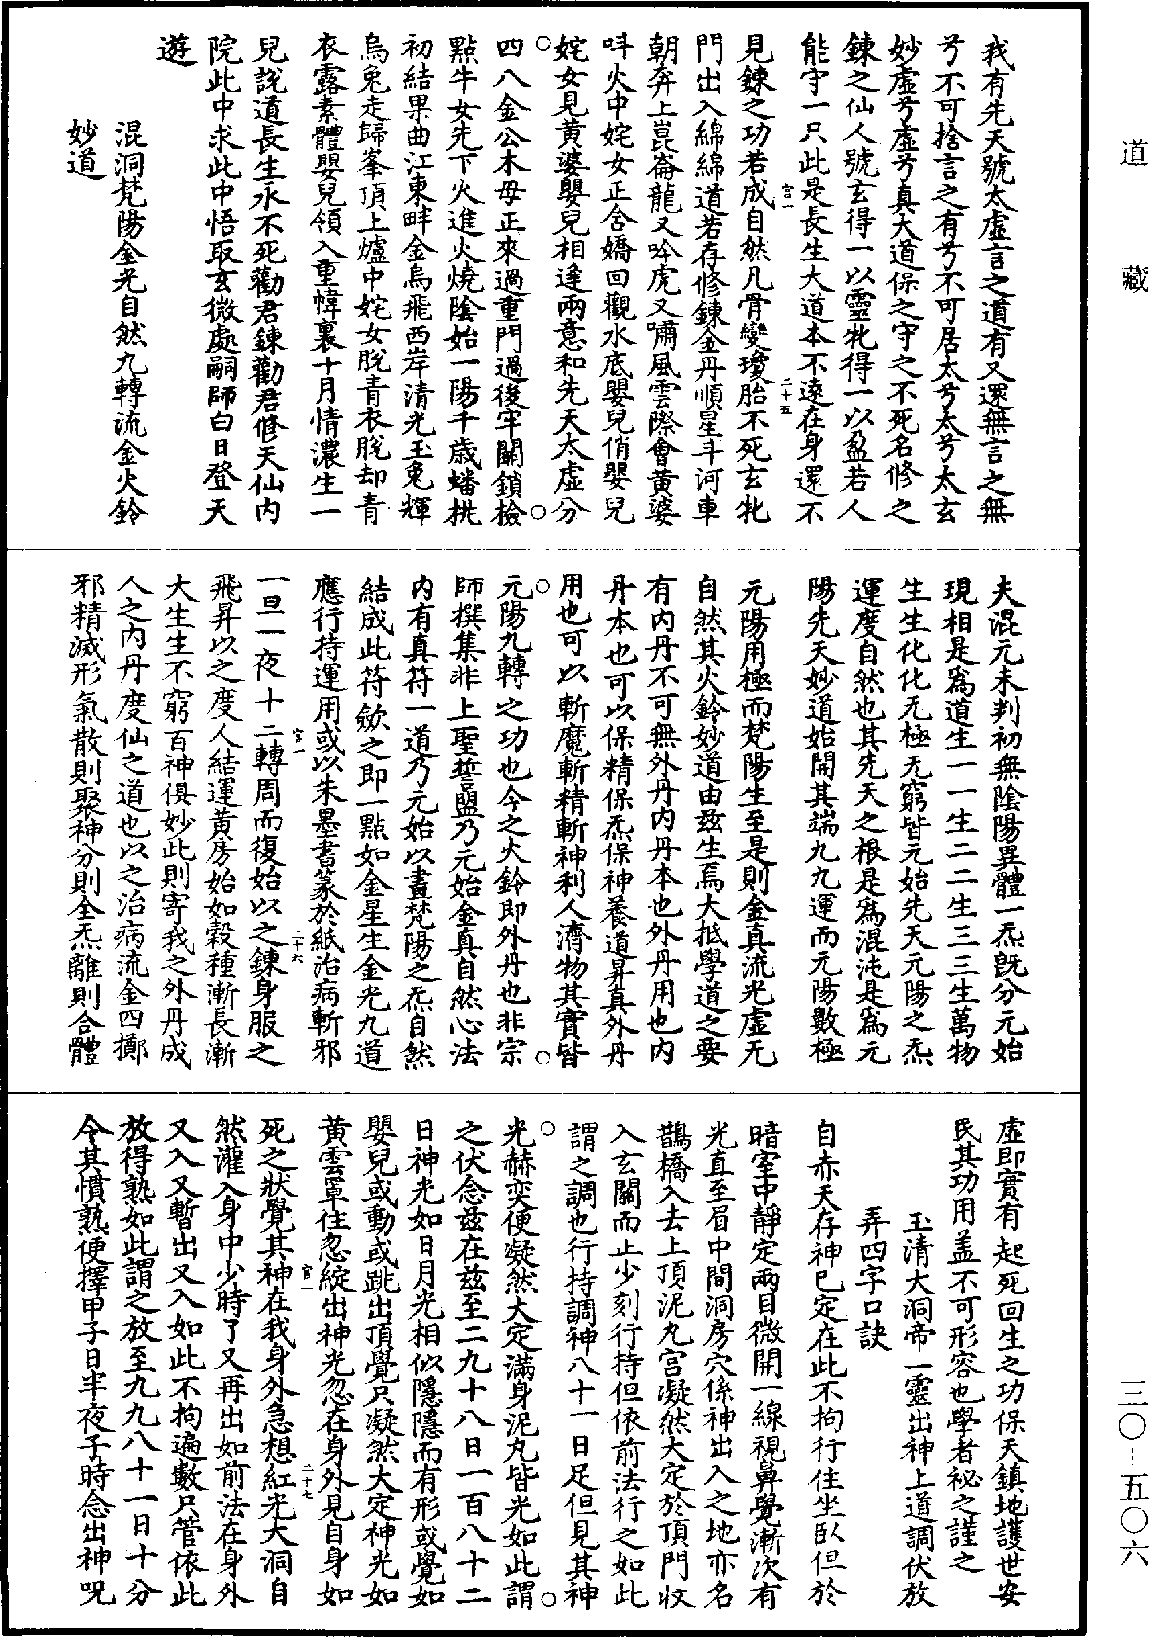 道藏
三〇-五〇六
我有先天號太虛言之道有又還無言之無
兮不可捨言之有兮不可居太兮太兮太玄
妙虛兮虛兮真大道保之守之不死名修之
鍊之仙人號玄得一以靈牝得一以盈若人
能守一只此是長生大道本不遠在身還不
宫一
二十五
見鍊之功若成自然凡骨變瓊胎不死玄牝
門出入綿綿道若存修鍊金丹順星斗河車
朝奔上崑崙龍又吟虎又嘯風雲際會黃婆
呌火中姹女正含嬌回觀水底嬰兒俏嬰兒
姹女見黃婆嬰兒相逢兩意和先天太虛分
四八金公木母正來過重門過後牢關鎖檢
點牛女先下火進火燒陰始一陽千歲蟠桃
初結果曲江東畔金烏飛西岸清光玉兔輝
烏兔走歸峯頂上爐中姹女脫青衣脫却青
衣露素體嬰兒領入重幃裏十月情濃生一
兒說道長生永不死勸君鍊勸君修天仙內
院此中求此中悟取玄微處嗣師白日登天
遊
混洞梵陽金光自然九轉流金火鈴
妙道
夫混元未判初無陰陽異體一炁旣分元始
現相是爲道生一一生二二生三三生萬物
生生化化无極无窮皆元始先天元陽之炁
運度自然也其先天之根是爲混沌是爲元
陽先天妙道始開其端九九運而元陽數極
元陽用極而梵陽生至是則金真流光虛无
自然其火鈴妙道由兹生焉大抵學道之要
有內丹不可無外丹內丹本也外丹用也內
丹本也可以保精保炁保神養道昇真外丹
用也可以斬魔斬精斬神利人濟物其實皆
元陽九轉之功也今之火鈴即外丹也非宗
師撰集非上聖誓盟乃元始金真自然心法
內有真符一道乃元始以畫梵陽之炁自然
結成此符歛之即一點如金星生金光九道
應行持運用或以朱墨書篆於紙治病斬邪
宫一
二十六
一旦一夜十二轉周而復始以之鍊身服之
飛昇以之度人結運黃房始如穀種漸長漸
大生生不窮百神俱妙此則寄我之外丹成
人之內丹度仙之道也以之治病流金四擲
邪精滅形氣散則聚神分則全炁離則合體
虛即實有起死回生之功保天鎮地護世安
民其功用盖不可形容也學者祕之謹之
玉清大洞帝一靈出神上道調伏放
弄四字口訣
自赤天存神已定在此不拘行住坐臥但於
暗室中靜定兩目微開一線視鼻覺漸次有
光直至眉中間洞房穴係神出入之地亦名
鵲橋入去上頂泥丸宫凝然大定於頂門收
入玄關而止少刻行持但依前法行之如此
謂之調也行持調神八十一日足但見其神
光赫奕便凝然大定滿身泥丸皆光如此謂
之伏念兹在兹至二九十八日一百八十二
日神光如日月光相似隱隱而有形或覺如
嬰兒或動或跳出頂覺只凝然大定神光如
黃雲罩住忽綻出神光忽在身外見自身如
宫一
二十七
死之狀覺其神在我身外急想紅光大洞自
然灌入身中少時了又再出如前法在身外
又入又暫出又入如此不拘遍數只管依此
放得熟如此謂之放至九九八十一日十分
令其慣熟便擇甲子日半夜子時念出神呪